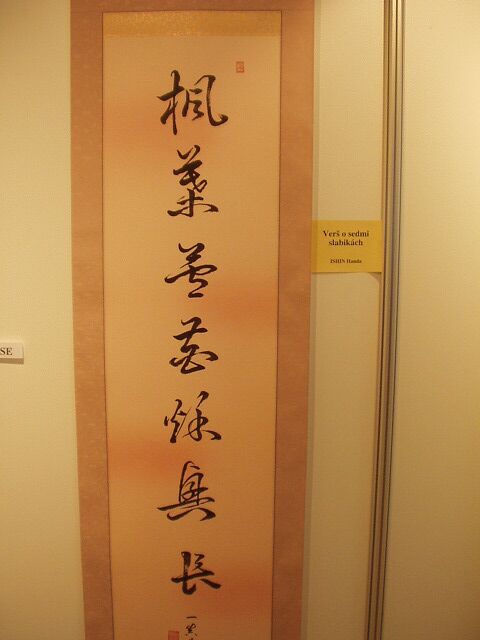 楓葉蘆花秋興長
Verš o sedmi
slabikách
ISHIN Handa
SE